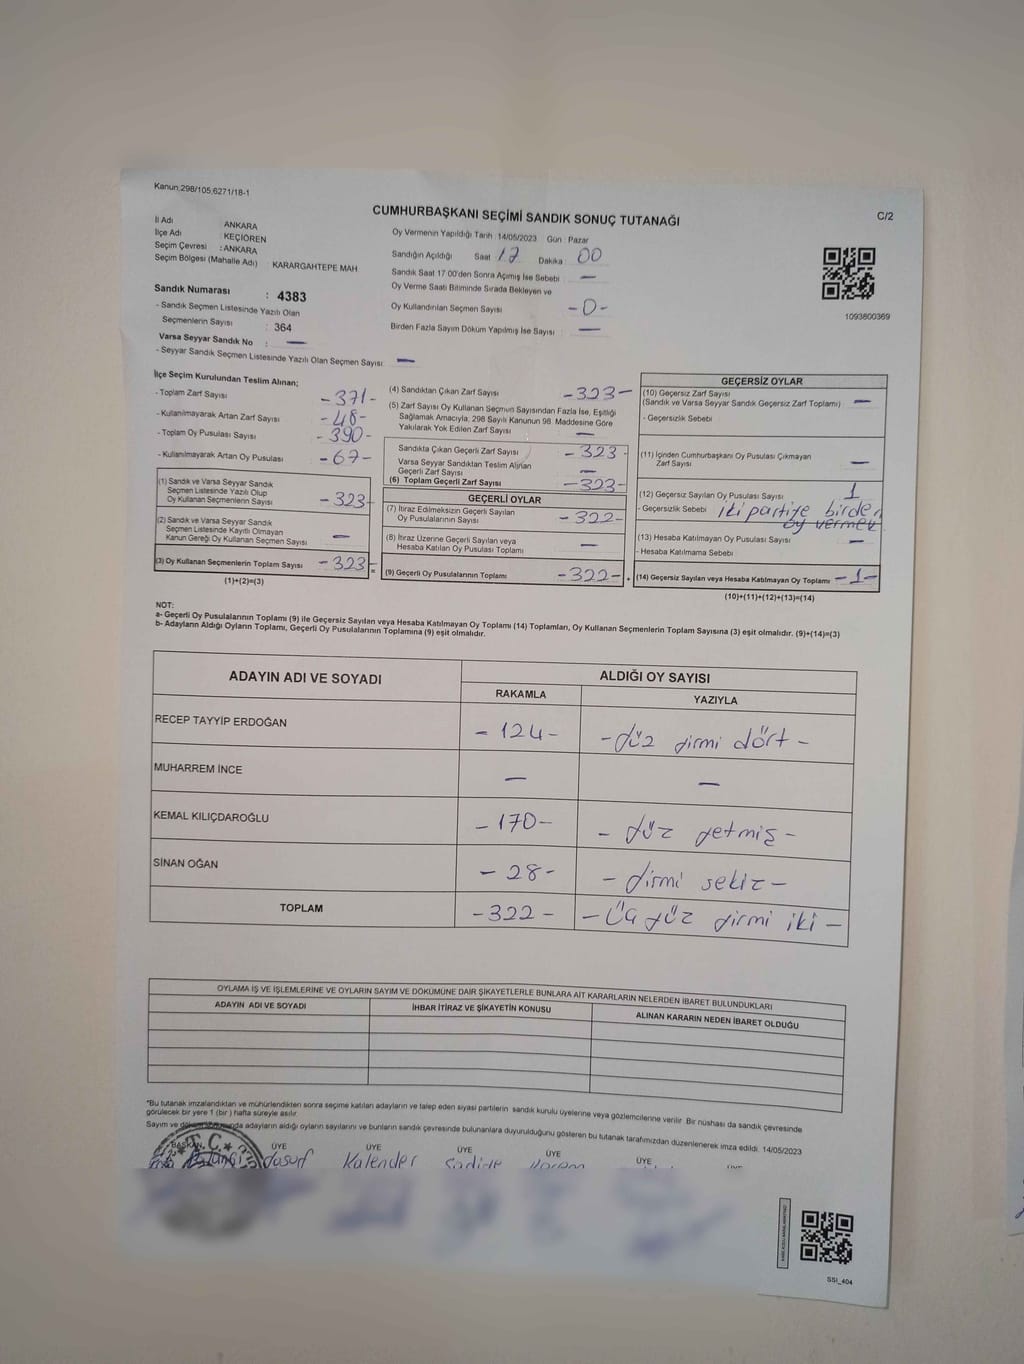 Kanun:298/105,6271/18-1
C/2
CUMHURBAŞKANI SEÇİMİ SANDIK SONUÇ TUTANAĞI
İl Adı ANKARA
İlçe Adı : KEÇİÖREN
Seçim Çevresi : ANKARA
Seçim Bölgesi (Mahalle Adı) : KARARGAHTEPE MAH.
Sandık Numarası : 4383
- Sandık Seçmen Listesinde Yazılı Olan
Seçmenlerin Sayısı : 364
Varsa Seyyar Sandık No : —
- Seyyar Sandık Seçmen Listesinde Yazılı Olan Seçmen Sayısı: —
Oy Vermenin Yapıldığı Tarih : 14/05/2023 Gün : Pazar
Sandığın Açıldığı Saat 17 Dakika : 00
Sandık Saat 17:00'den Sonra Açımış İse Sebebi : —
Oy Verme Saati Bitiminde Sırada Bekleyen ve
Oy Kullandırılan Seçmen Sayısı : -0-
Birden Fazla Sayım Döküm Yapılmış İse Sayısı : —
1093800369
İlçe Seçim Kurulundan Teslim Alınan;
- Toplam Zarf Sayısı -371-
- Kullanılmayarak Artan Zarf Sayısı -48-
- Toplam Oy Pusulası Sayısı -390-
- Kullanılmayarak Artan Oy Pusulası -67-
(1) Sandık ve Varsa Seyyar Sandık
Seçmen Listesinde Yazılı Olup
Oy Kullanan Seçmenlerin Sayısı -323-
(2) Sandık ve Varsa Seyyar Sandık
Seçmen Listesinde Kayıtlı Olmayan
Kanun Gereği Oy Kullanan Seçmen Sayısı —
(3) Oy Kullanan Seçmenlerin Toplam Sayısı -323-
(1)+(2)=(3)
(4) Sandıktan Çıkan Zarf Sayısı -323-
(5) Zarf Sayısı Oy Kullanan Seçmen Sayısından Fazla İse, Eşitliği
Sağlamak Amacıyla; 298 Sayılı Kanunun 98. Maddesine Göre
Yakılarak Yok Edilen Zarf Sayısı —
Sandıkta Çıkan Geçerli Zarf Sayısı -323-
Varsa Seyyar Sandıktan Teslim Alınan
Geçerli Zarf Sayısı —
(6) Toplam Geçerli Zarf Sayısı -323-
GEÇERLİ OYLAR
(7) İtiraz Edilmeksizin Geçerli Sayılan
Oy Pusulalarının Sayısı -322-
(8) İtiraz Üzerine Geçerli Sayılan veya
Hesaba Katılan Oy Pusulası Toplamı —
(9) Geçerli Oy Pusulalarının Toplamı -322-
GEÇERSİZ OYLAR
(10) Geçersiz Zarf Sayısı
(Sandık ve Varsa Seyyar Sandık Geçersiz Zarf Toplamı) —
- Geçersizlik Sebebi
(11) İçinden Cumhurbaşkanı Oy Pusulası Çıkmayan
Zarf Sayısı —
(12) Geçersiz Sayılan Oy Pusulası Sayısı 1
- Geçersizlik Sebebi iki partiye birden
oy vermek
(13) Hesaba Katılmayan Oy Pusulası Sayısı —
- Hesaba Katılmama Sebebi
(14) Geçersiz Sayılan veya Hesaba Katılmayan Oy Toplamı -1-
(10)+(11)+(12)+(13)=(14)
NOT:
a- Geçerli Oy Pusulalarının Toplamı (9) ile Geçersiz Sayılan veya Hesaba Katılmayan Oy Toplamı (14) Toplamları, Oy Kullanan Seçmenlerin Toplam Sayısına (3) eşit olmalıdır. (9)+(14)=(3)
b- Adayların Aldığı Oyların Toplamı, Geçerli Oy Pusulalarının Toplamına (9) eşit olmalıdır.
ADAYIN ADI VE SOYADI ALDIĞI OY SAYISI
RAKAMLA YAZIYLA
RECEP TAYYİP ERDOĞAN -124- -yüz yirmi dört-
MUHARREM İNCE — —
KEMAL KILIÇDAROĞLU -170- -yüz yetmiş-
SİNAN OĞAN -28- -yirmi sekiz-
TOPLAM -322- -Üçyüz yirmi iki-
OYLAMA İŞ VE İŞLEMLERİNE VE OYLARIN SAYIM VE DÖKÜMÜNE DAİR ŞİKAYETLERLE BUNLARA AİT KARARLARIN NELERDEN İBARET BULUNDUKLARI
ADAYIN ADI VE SOYADI İHBAR İTİRAZ VE ŞİKAYETİN KONUSU ALINAN KARARIN NEDEN İBARET OLDUĞU
*Bu tutanak imzalandıktan ve mühürlendikten sonra seçime katılan adayların ve talep eden siyasi partilerin sandık kurulu üyelerine veya gözlemcilerine verilir. Bir nüshası da sandık çevresinde
görülecek bir yere 1 (bir) hafta süreyle asılır.
Sayım ve adayların aldığı oyların sayılarını ve bunların sandık çevresinde bulunanlara duyurulduğunu gösteren bu tutanak tarafımızdan düzenlenerek imza edildi. 14/05/2023
BAŞKAN ÜYE ÜYE ÜYE ÜYE ÜYE
T.C.
Yusuf Kalender
SSI_404